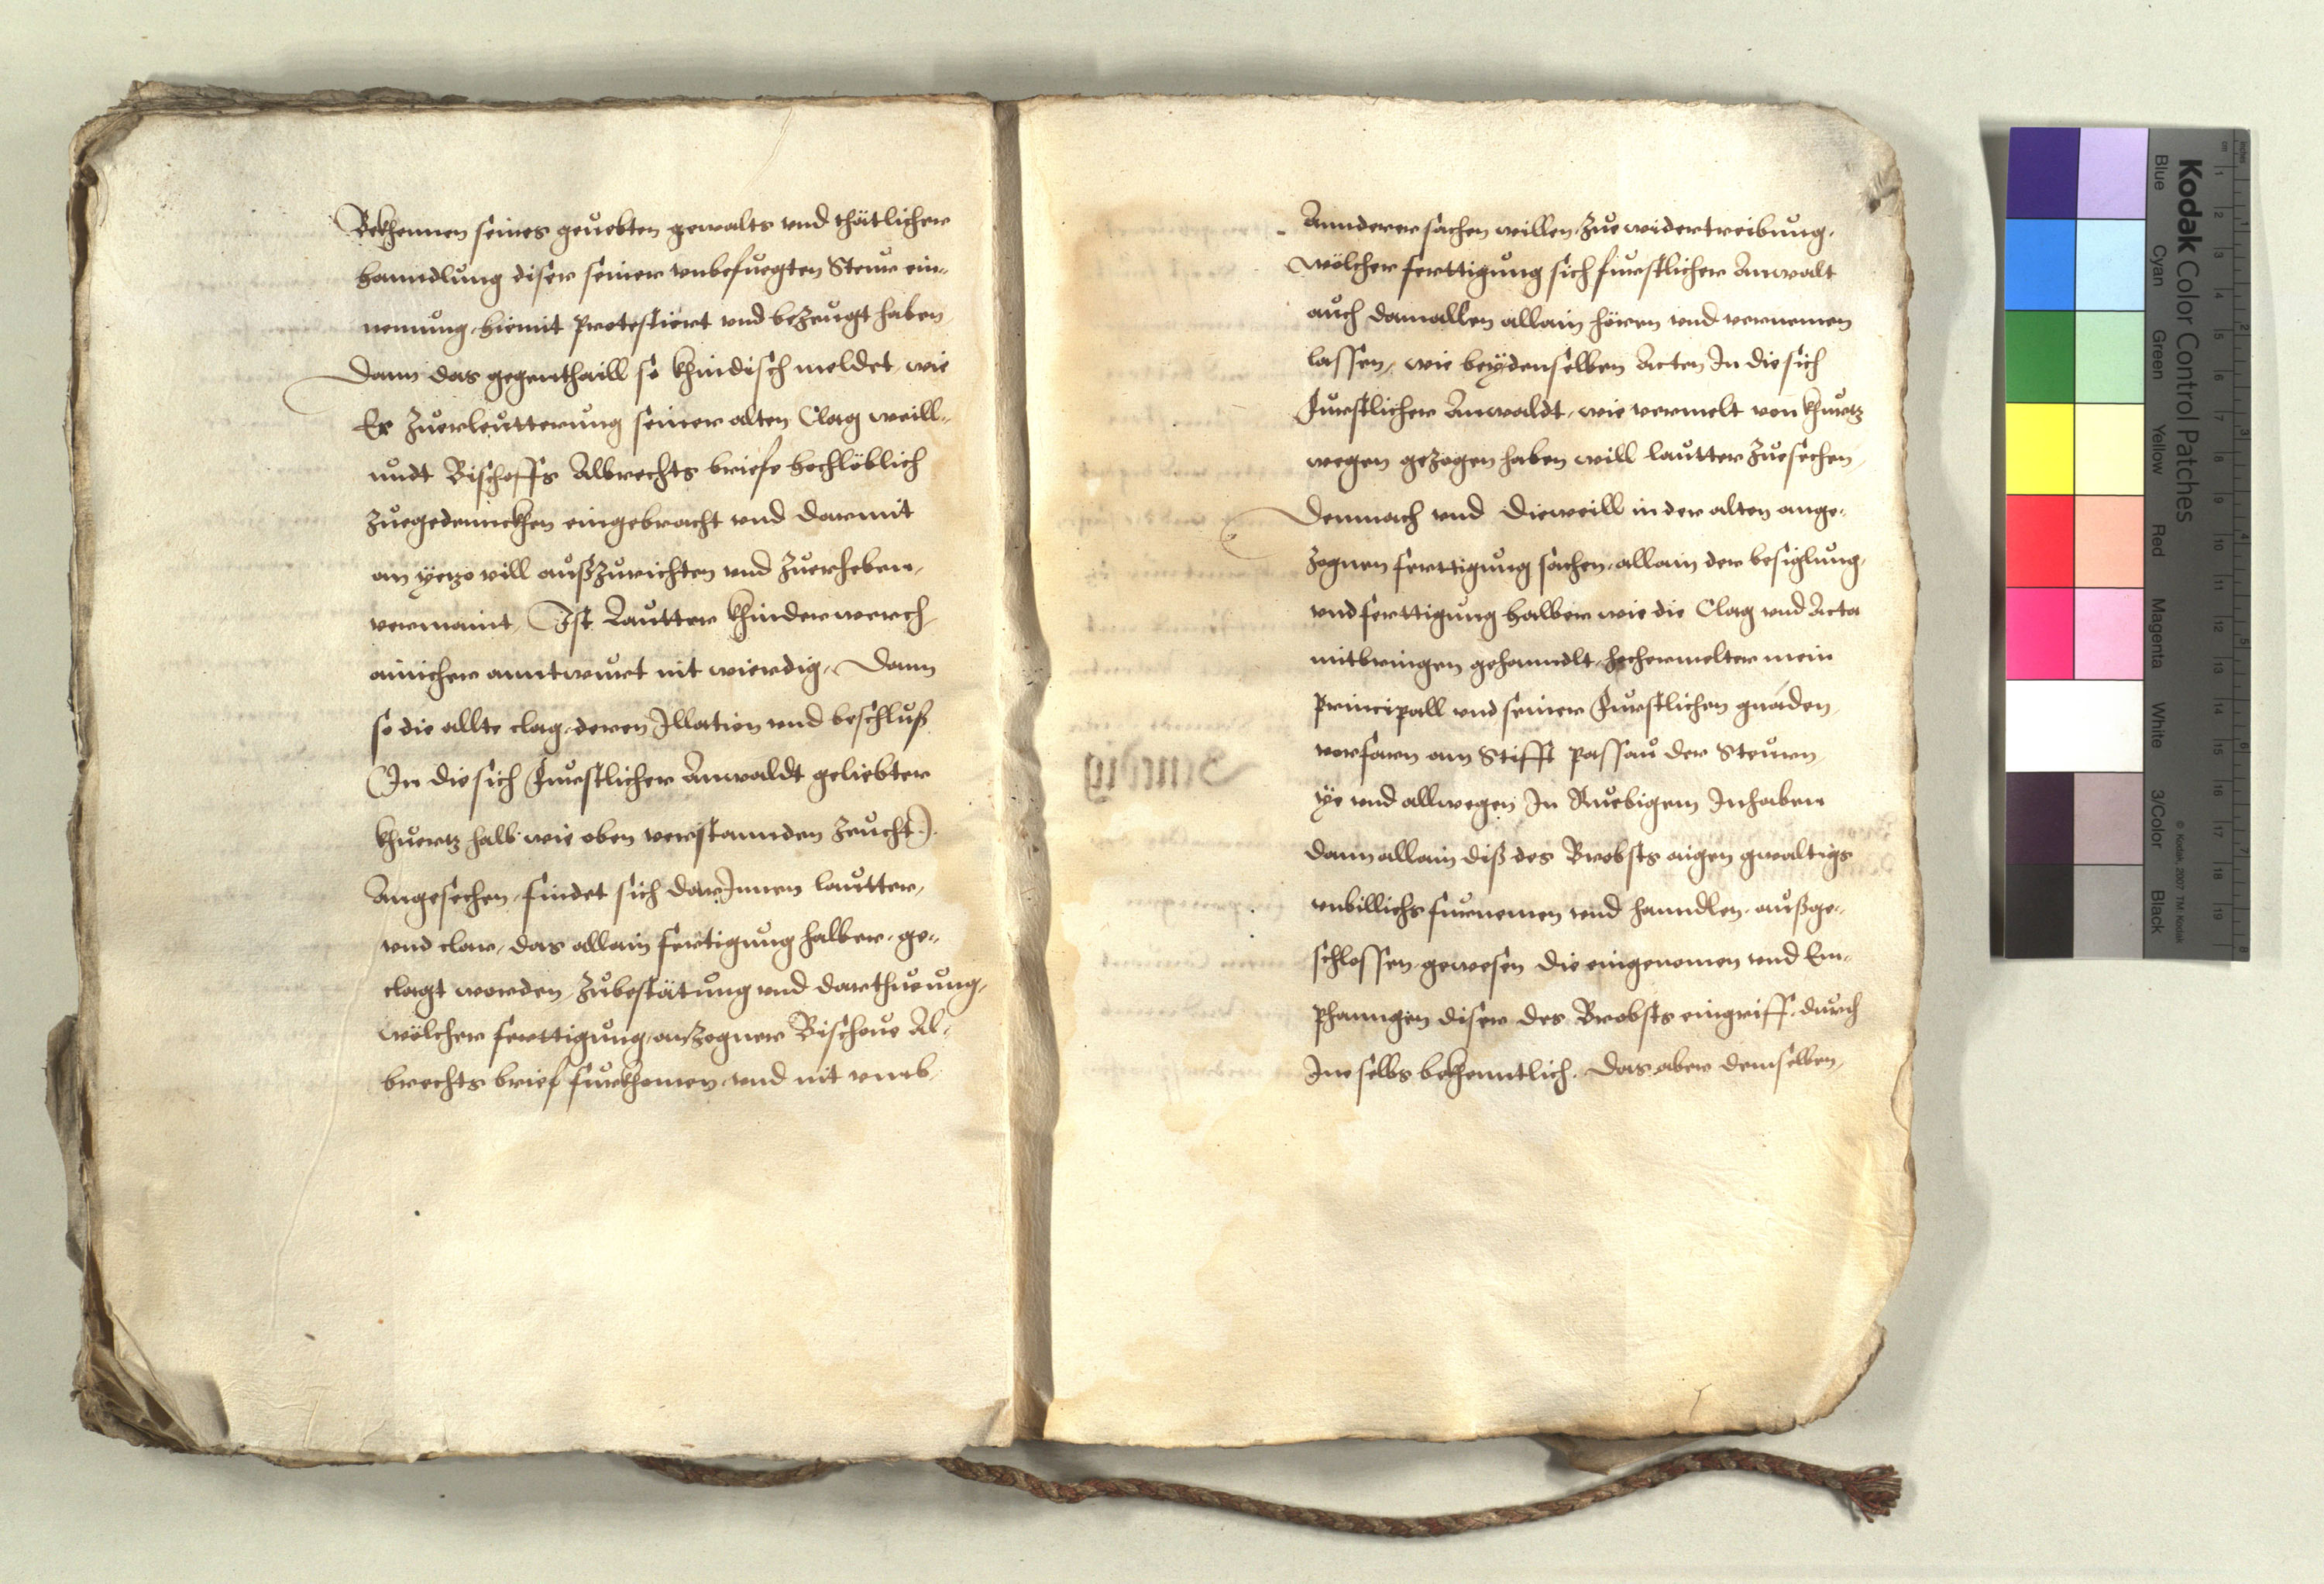 Bekhennen seines geuebten gewalts vnd thätlicher
hanndlung diser seiner vnbefuegten Steur ein-
nemung, hiemit protestiert vnd bezeugt haben,
Dann das gegenthaill so khindisch meldet, wie
Er zuerleutterung seiner alten Clag weill-
undt Bischoffs Albrechts briefe hochlöblich
zuegedennckhen eingebracht vnd darmit
an yetzo vill außzurichten vnd zuerheben,
vermaint, Ist Lautter khinderwerch,
ainicher anntwurt nit wierdig, Dann
so die allte clag, deren Illation vnd beschluß
(In die sich Furstlicher Anwaldt geliebter
khuertz halb wie oben verstannden zeucht)
Angesechen, findet sich darInnen lautter,
vnd clar, das allain fertigung halber, ge-
clagt worden, zubestätung vnd darthueung,
wölcher ferttigung, anzogner Bischoue Al-
brechts brief furkhomen, vnd nit vmb,
Annderer sachen willen, zue widertreibung,
wölcher ferttigung sich furstlicher Anwalt
auch damallen allain hören vnd vernemen
lassen, wie beÿ denselben Acten In die sich
Furstlicher Anwaldt, wie vermelt von khurtz
wegen gezogen haben will lautter zuesechen,
Demnach vnd Dieweill in der alten ange-
zognen ferttigung sachen, allain der besiglung,
vnd ferttigung halber wie die Clag vnd Acta
mitbringen gehanndlt, hochermelter mein
principall vnd seiner Furstlichen gnaden,
vorfarn am Stifft passau der Steurn,
ÿe vnd allwegen In Ruebigem Inhaben
dann allain diß des Brobsts aigen gwaltigs
vnbillichs furnemen vnd hanndlen, außge-
schlossen, gewesen die eingenomen vnd Em-
phanngen diser des Brobsts eingriff, durch
Ine selbs bekhenntlich. Das aber demselben,
Kodak Color Control Patches
Blue
Cyan
Green
Yellow
Red
Magenta
White
3/Color
Black
© Kodak, 2007 TM: Kodak